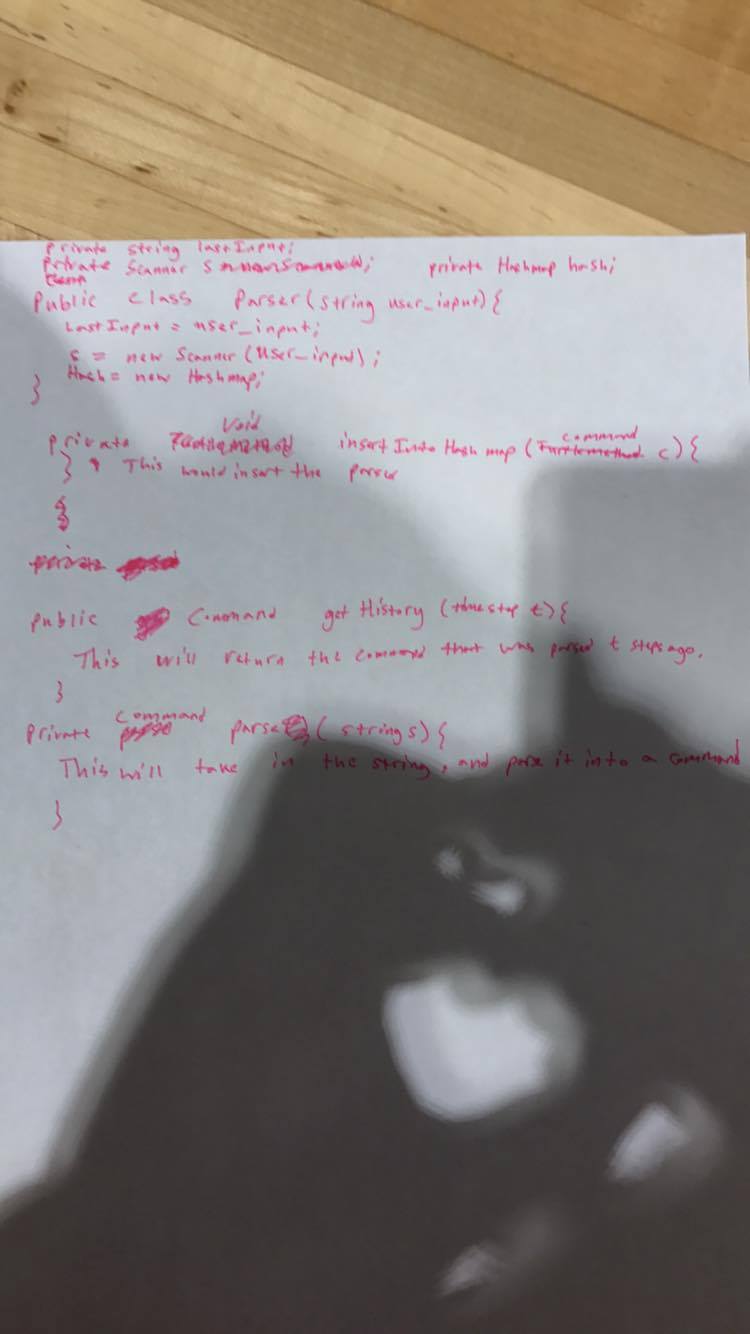 private string lastInput;
Private Scanner s ; private Hashmap hash;
Public class Parser(string user_input){
LastInput = user_input;
s = new Scanner(user_input);
Hash = new Hashmap;
}
Void
command
private insert Into Hash map (Turtlemethod c){
} This would insert the parser
}
private
public Command get History (timestep t){
This will return the command that was parsed t steps ago.
}
Command
Private parse (string s){
This will take in the string, and parse it into a command
}